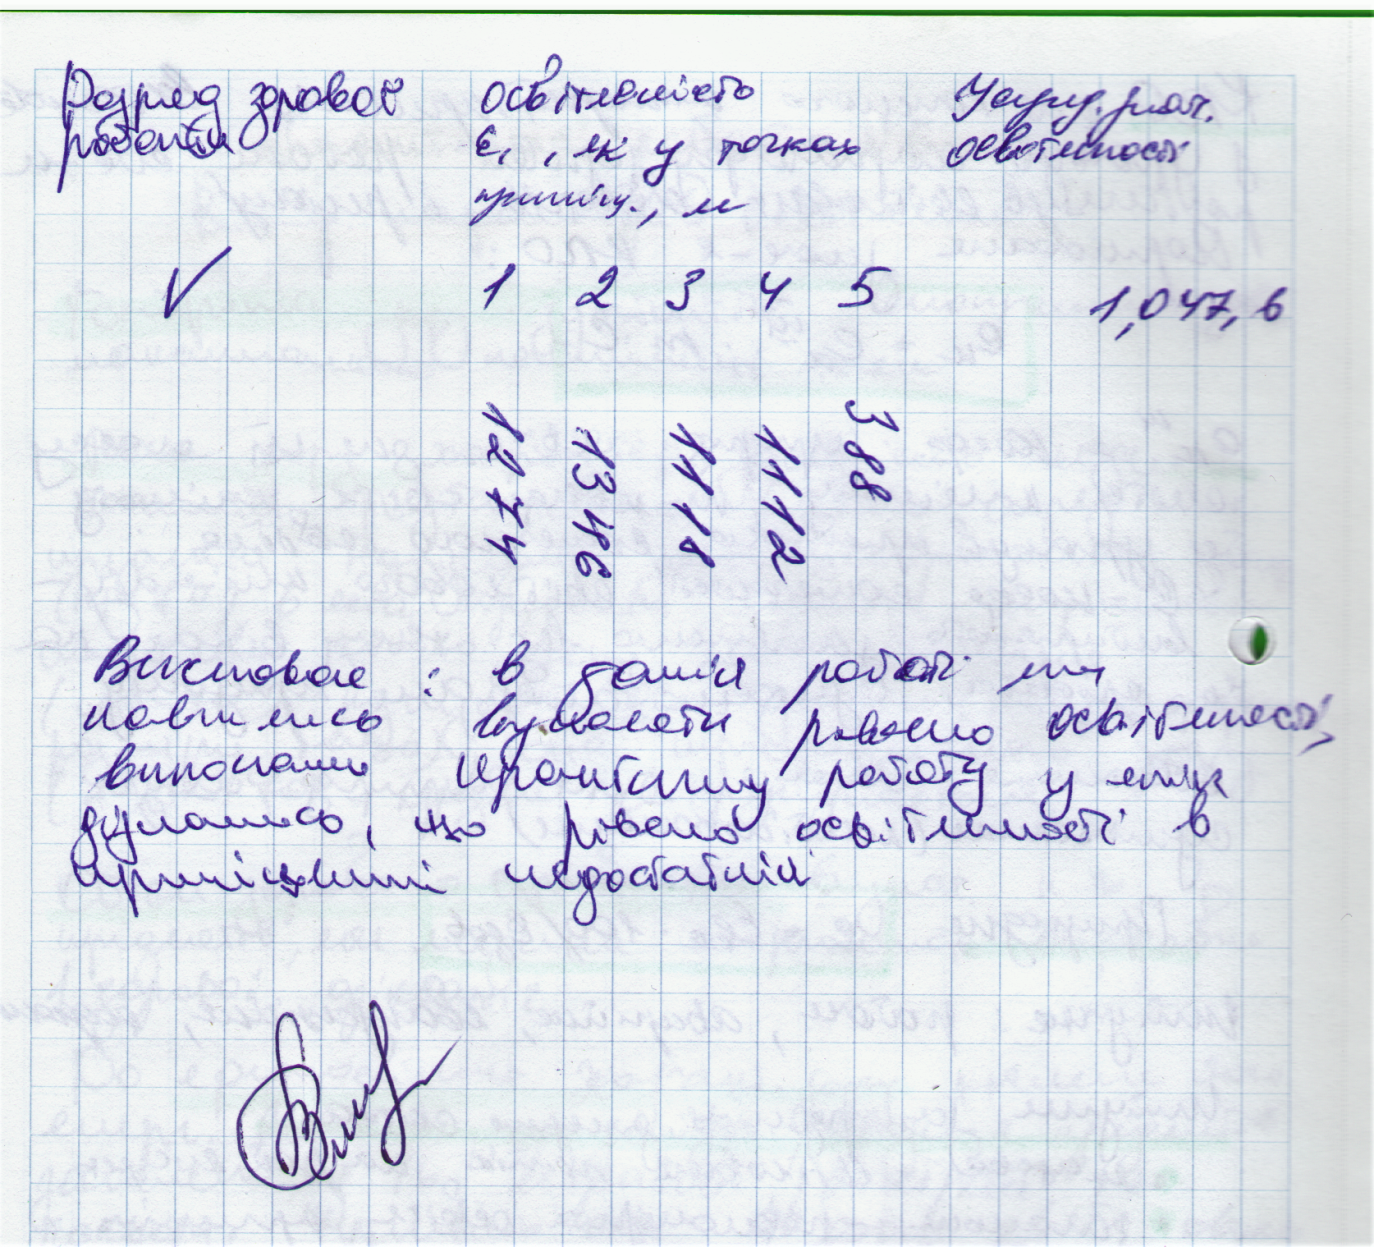 Розряд зорової освітленість Усеред. знач.
роботи Е, лк у точках освітленості
приміщ., м
V 1 2 3 4 5 1,047,6
1274 1346 1118 1112 388
Висновок: в даній роботі ми
навчились визначати рівень освітленості,
виконали практичну роботу у якій
дізнались, що рівень освітленості в
приміщенні недостатній